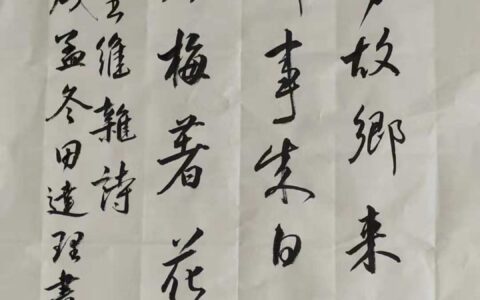 故鄉来
事来日
梅著花
王維雜詩
孟冬田達理書